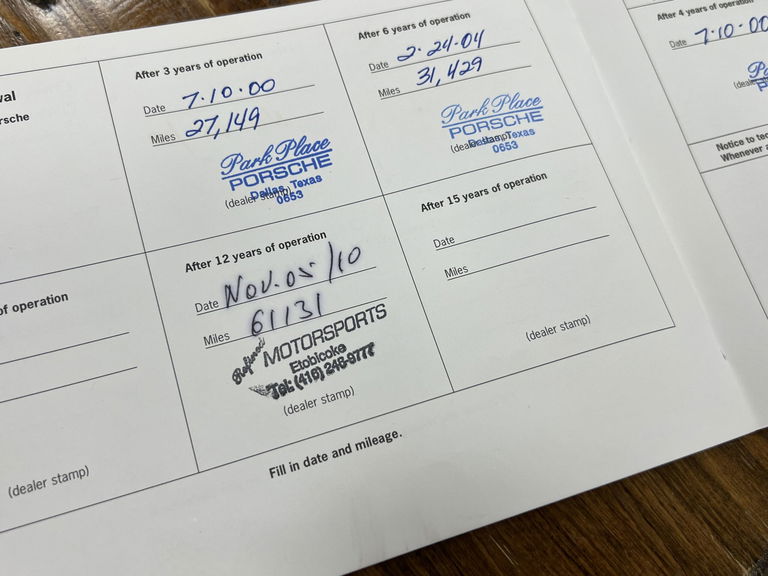 val
rsche
After 3 years of operation
Date 7·10·00
Miles 27,149
Park Place
PORSCHE
Dallas, Texas
(dealer stamp)
0653
After 6 years of operation
Date 2·24·04
Miles 31,429
Park Place
PORSCHE
Dallas, Texas
(dealer stamp)
0653
After 4 years of operation
Date 7·10·00
P
(deale
Notice to tec
Whenever a
of operation
(dealer stamp)
After 12 years of operation
Date Nov. 05/10
Miles 61131
MOTORSPORTS
Etobicoke
Tel: (416) 248-9777
(dealer stamp)
After 15 years of operation
Date
Miles
(dealer stamp)
Fill in date and mileage.